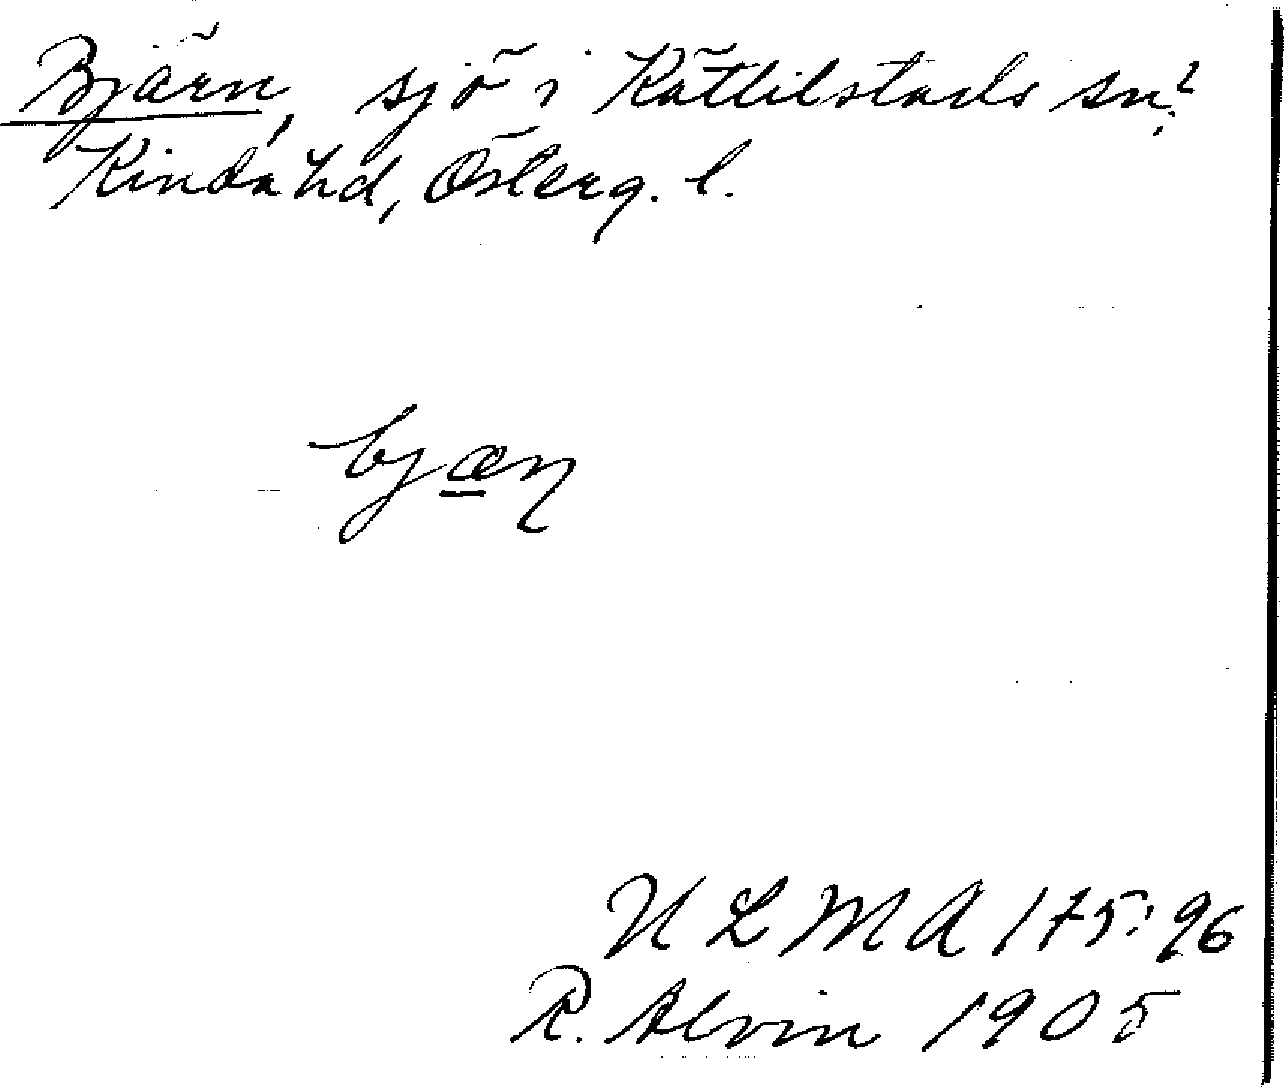 Bjärn, sjö i Kättilstads sn?
Kinda hd, Österg. l.
bjæɳ
ULMA 175:96
R. Alvin 1905